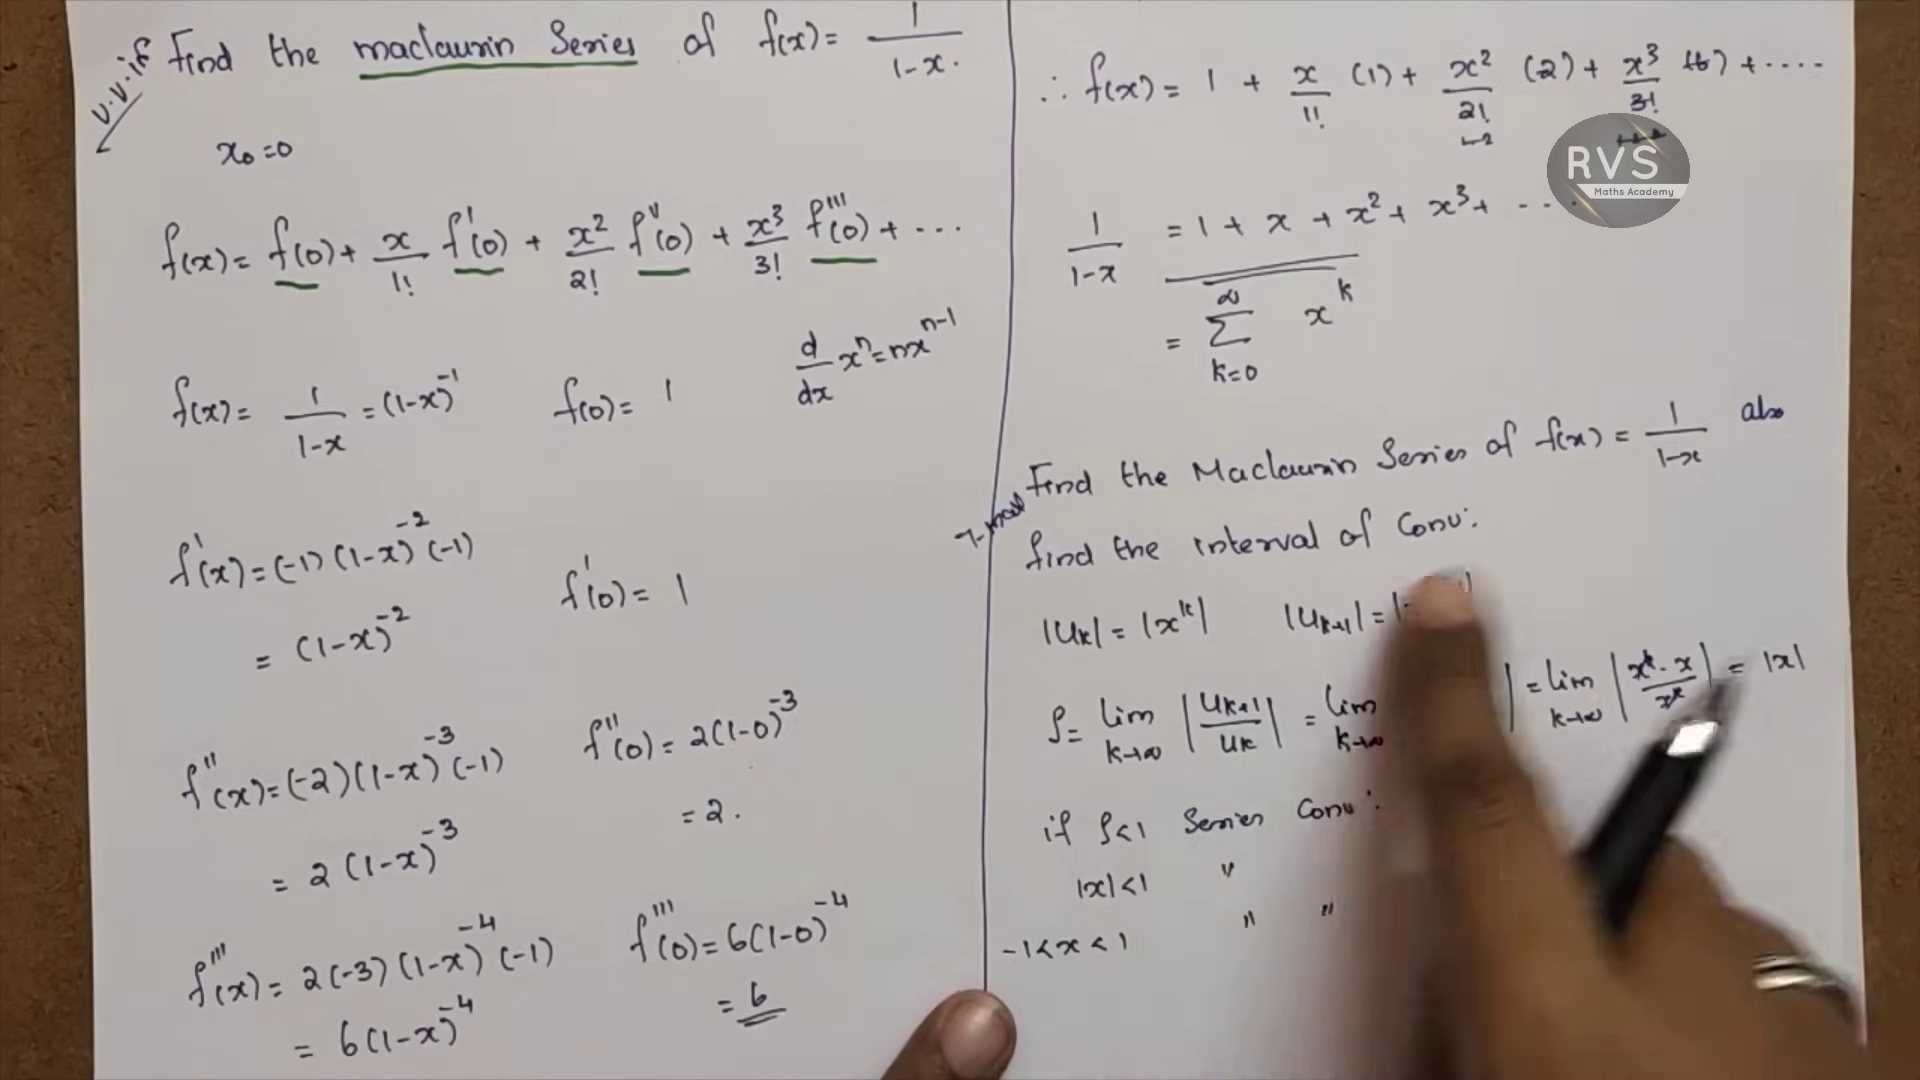 V.V.if Find the maclaurin Series of f(x) = 1/1-x.
x₀ = 0
f(x) = f(0) + x/1! f'(0) + x²/2! f''(0) + x³/3! f'''(0) + ...
d/dx xⁿ = nxⁿ⁻¹
f(x) = 1/1-x = (1-x)⁻¹ f(0) = 1
f'(x) = (-1)(1-x)⁻²(-1) f'(0) = 1
= (1-x)⁻²
f''(x) = (-2)(1-x)⁻³(-1) f''(0) = 2(1-0)⁻³
= 2(1-x)⁻³ = 2.
f'''(x) = 2(-3)(1-x)⁻⁴(-1) f'''(0) = 6(1-0)⁻⁴
= 6(1-x)⁻⁴ = 6
∴ f(x) = 1 + x/1! (1) + x²/2! (2) + x³/3! (6) + ....
RVS
Maths Academy
1/1-x = 1 + x + x² + x³ + ...
= ∞ Σ k=0 xᵏ
Find the Maclaurin Series of f(x) = 1/1-x also
find the interval of Conv:
|Uk| = |xᵏ| |Uk+1| =
ρ = lim k→∞ |Uk+1/Uk| = lim k→∞ | = lim k→∞ |xᵏ·x/xᵏ| = |x|
if ρ<1 Series Conv:
|x|<1 "
-1<x<1 " "